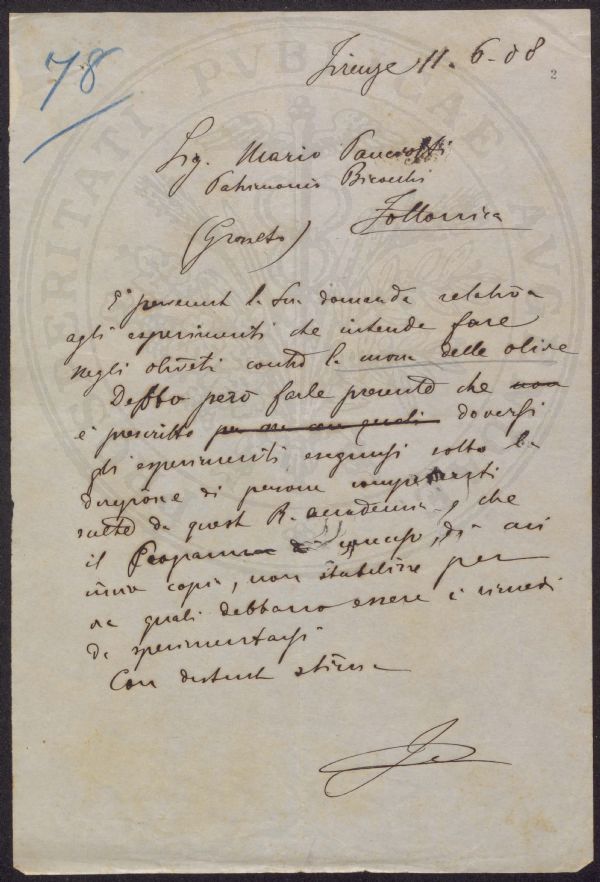 78
Firenze 11. 6-08
2
Sig. Mario
Patrimonio Bicocchi
(Grosseto) Follonica
E' pervenuta la Sua domanda relativa
agli esperimenti che intende fare
negli oliveti contro la mosca delle olive
Debbo però farle presente che non
è prescritto doversi
gli esperimenti eseguirsi sotto la
direzione di persone competenti
scelte da questa R. Accademia, che
il Programma concorso, di cui
invio copia, non stabilisce per
ora quali debbano essere i rimedi
da sperimentarsi
Con distinta stima